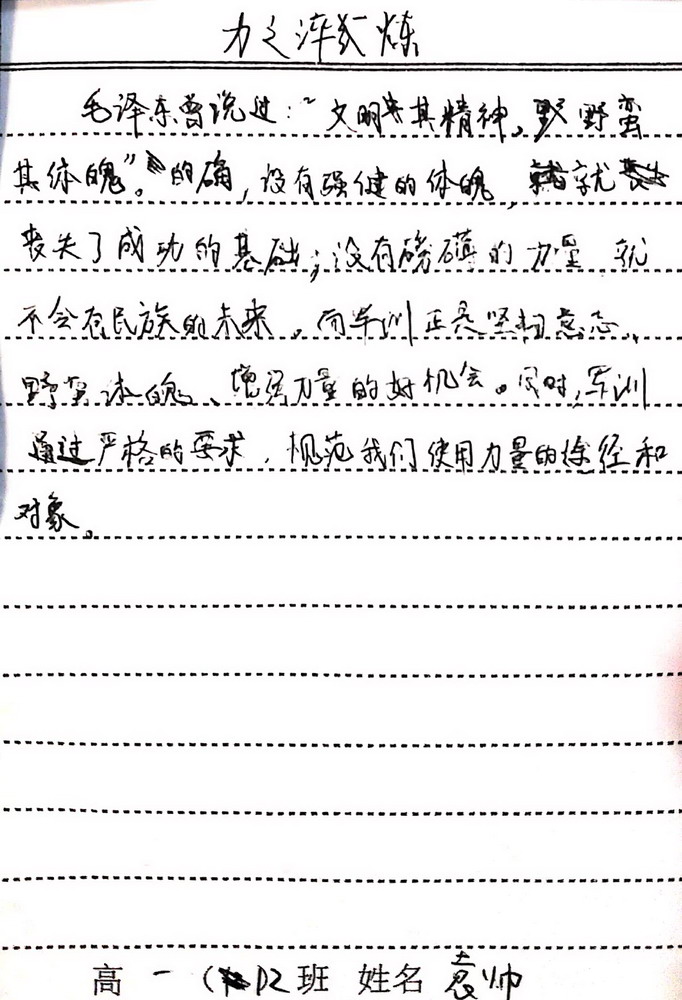 力之淬炼
毛泽东曾说过：“文明其精神，野蛮
其体魄”。的确，没有强健的体魄，就
丧失了成功的基础；没有磅礴的力量 就
不会有民族的未来。而军训正是坚韧意志、
野蛮体魄、增强力量的好机会。同时，军训
通过严格的要求，规范我们使用力量的途径和
对象。
高一（）2班 姓名 袁帅